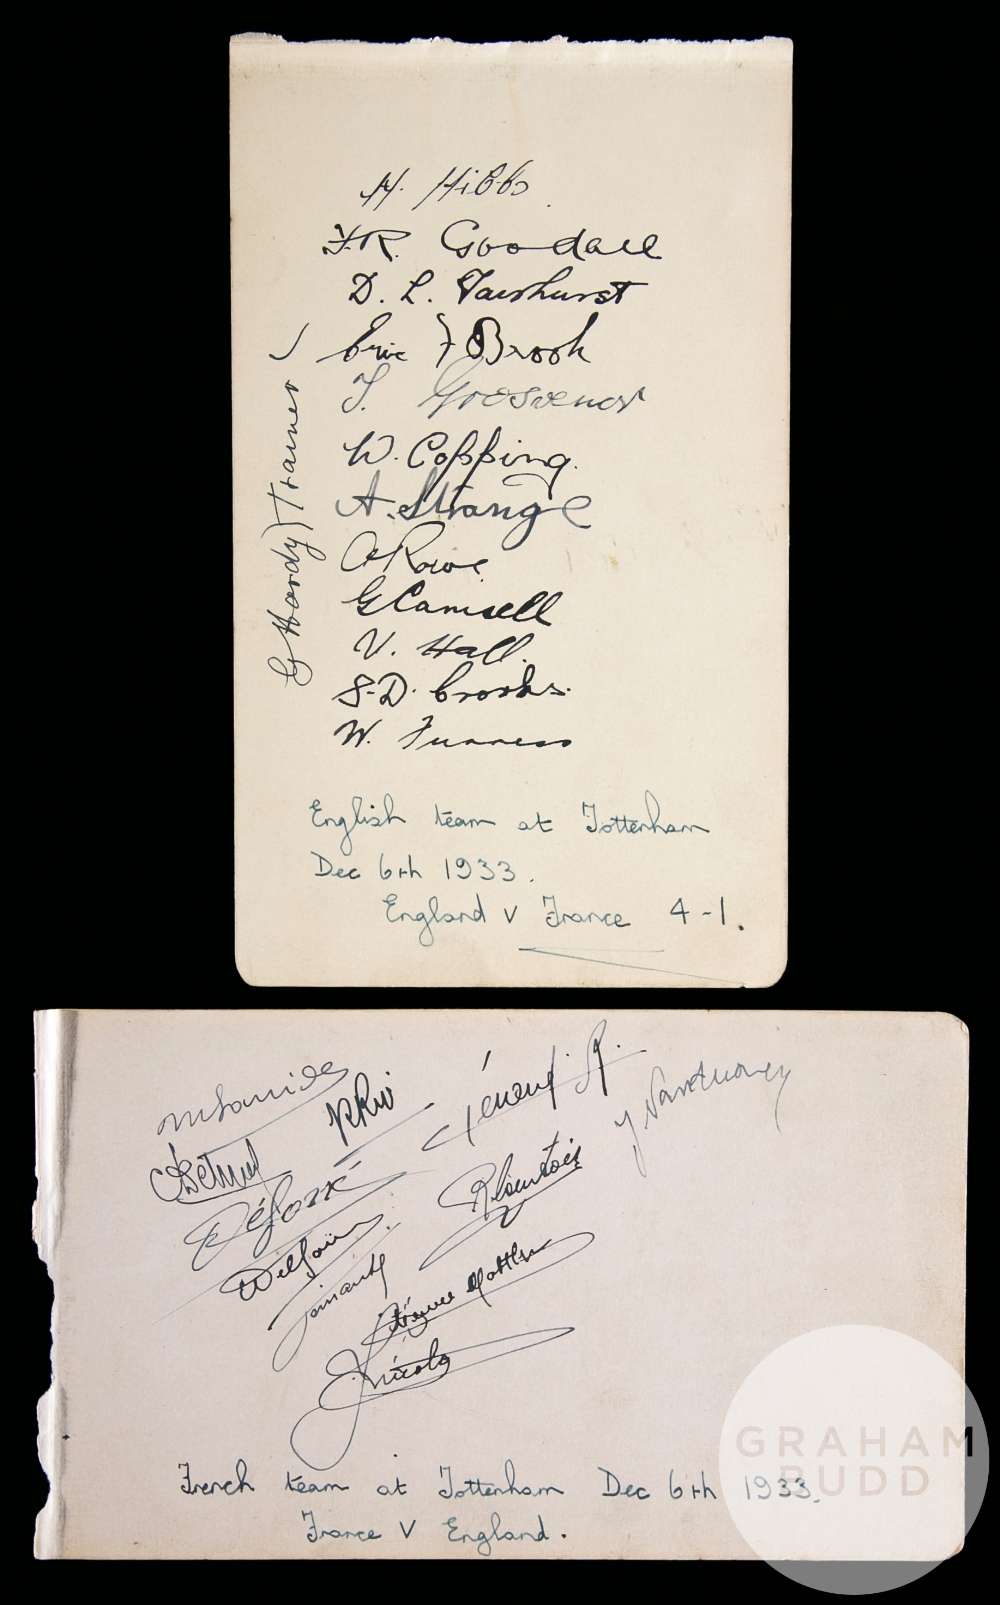 H. Hibbs.
F.R. Goodall
D. L. Fairhurst
Eric F Brook
T. Grosvenor
W. Copping.
A. Strange
A Rowe
G Camsell
V. Hall.
S.D. Crooks.
W. Furness
G Hardy) Trainer
English team at Tottenham
Dec 6th 1933.
England v France 4-1.
R Rio
J Vandooren
Défossé
Delfour
Nicolas
French team at Tottenham Dec 6th 1933.
France V England.
GRAHAM
BUDD